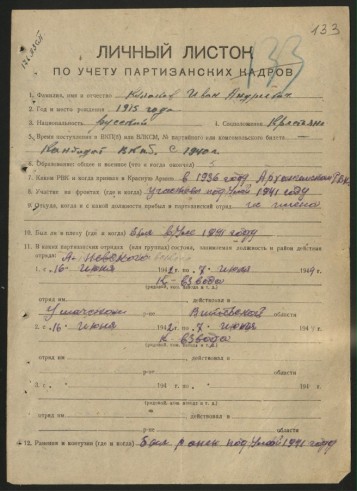 133
133
ЛИЧНЫЙ ЛИСТОК
ПО УЧЕТУ ПАРТИЗАНСКИХ КАДРОВ
1. Фамилия, имя и отчество Иван Андреевич
2. Год и место рождения 1915 года
3. Национальность русский 4. Соцположение Крестьянин
5. Время поступления в ВКП(б) или ВЛКСМ, № партийного или комсомольского билета
Кандидат ВКПб, с 1940 г.
6. Образование общее и военное (что и когда окончил) 5
7. Каким РВК и когда призван в Красную Армию в 1936 году
8. Участие на фронтах (где и когда) участвовал под 1941 году
9. Откуда, когда и в какой должности прибыл в партизанский отряд не имею
10. Был ли в плену (где и когда) был 1941 году
11. В каких партизанских отрядах (или группах) состоял, занимаемая должность и район действия
отряда: А-Невского
1. с 16 июня 1942 по 7 июня 194
К-взвода
(рядовой, ком. взвода и т. д.)
отряд им действовал в
Ушачском р-не Витебской области
2. с 16 июня 1942 по 7 июня 194
К-взвода
(рядовой, ком. взвода и т. д.)
отряд им действовал в
р-не области
3. с 194 по 194
(рядовой, ком. взвода и т. д.)
отряд им действовал в
р-не области
12. Ранения и контузии (где и когда) Был ранен под 1941 году